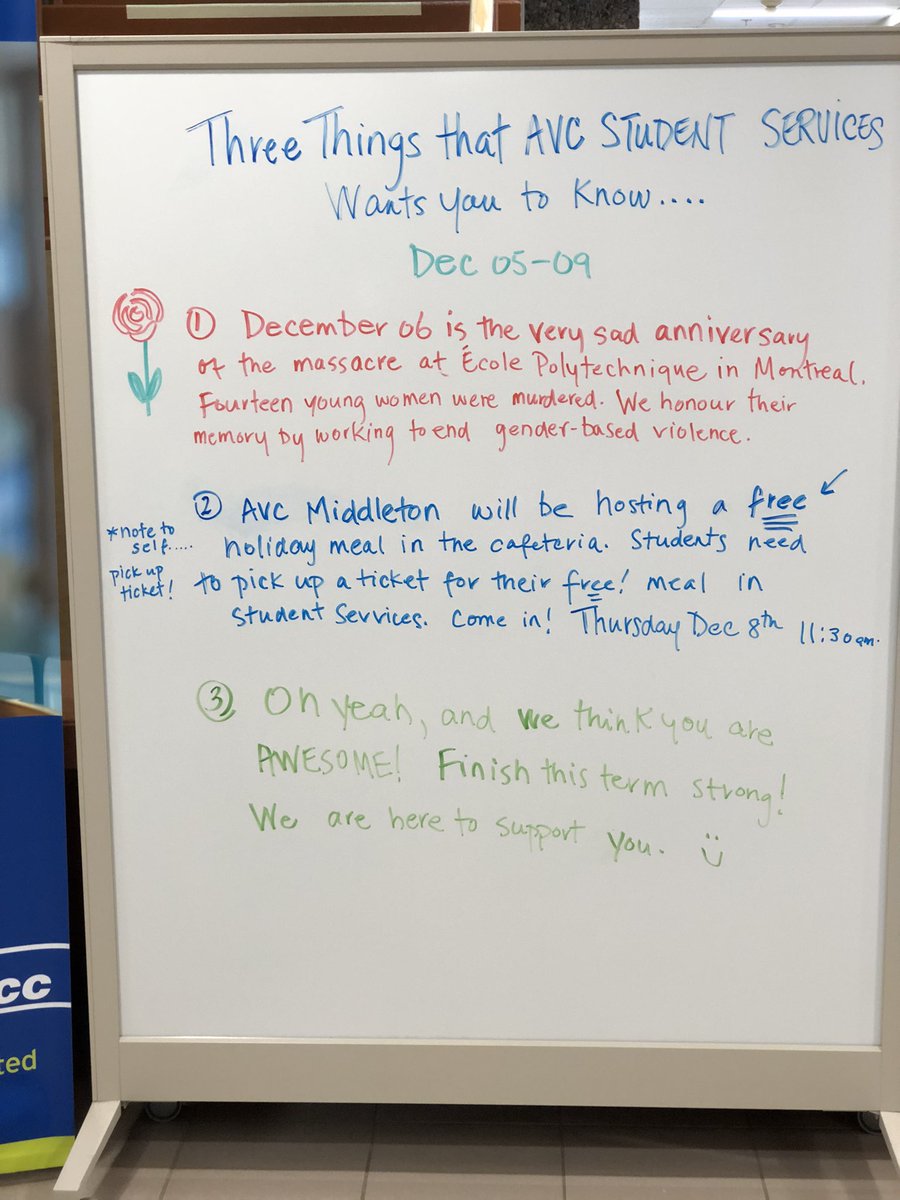 Three Things that AVC STUDENT SERVICES
Wants you to Know....
Dec 05-09
① December 06 is the very sad anniversary
of the massacre at École Polytechnique in Montreal.
Fourteen young women were murdered. We honour their
memory by working to end gender-based violence.
② AVC Middleton will be hosting a free
holiday meal in the cafeteria. Students need
to pick up a ticket for their free! meal in
Student Services. Come in! Thursday Dec 8th 11:30am.
*note to
self....
pick up
ticket!
③ Oh yeah, and we think you are
AWESOME! Finish this term strong!
We are here to support you. :)
cc
ted